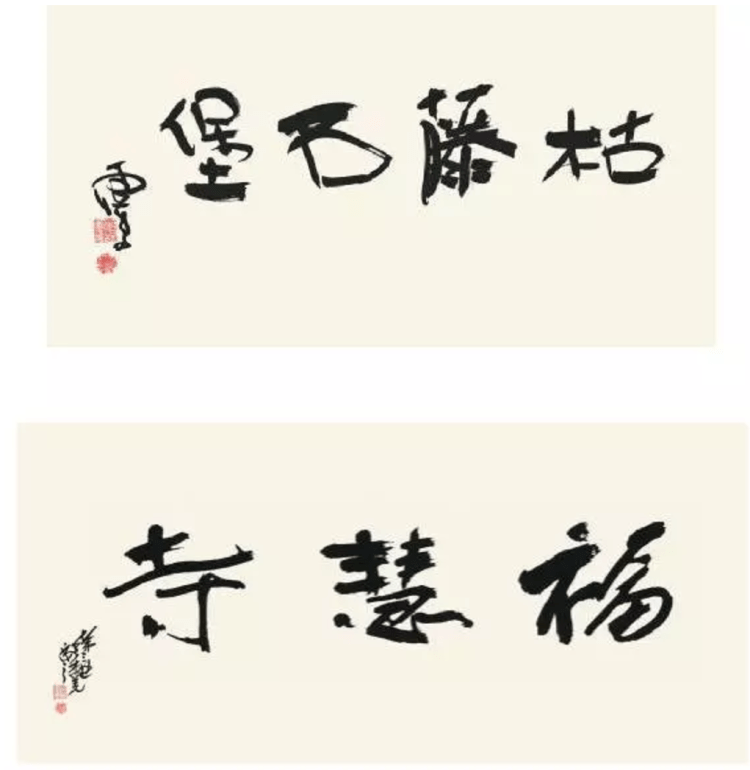 枯藤石堡
福慧寺